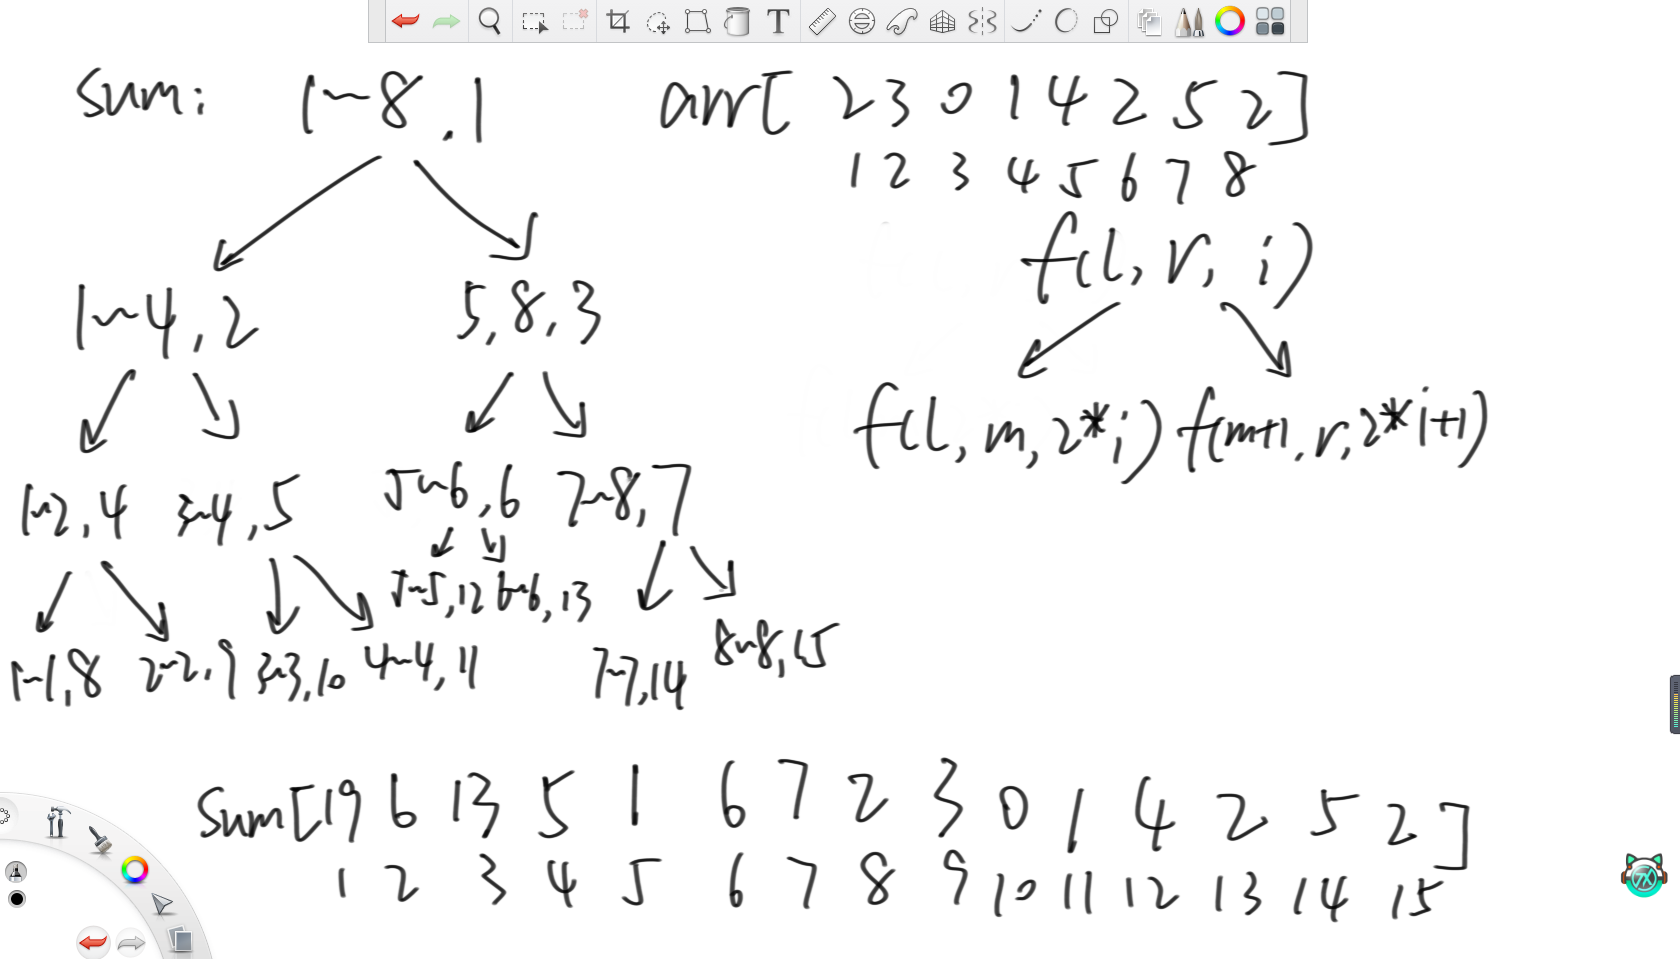 sum: 1~8,1
arr[ 2 3 0 1 4 2 5 2 ]
1 2 3 4 5 6 7 8
f(l, r, i)
1~4,2 5,8,3
f(l, m, 2*i) f(m+1, r, 2*i+1)
1~2,4 3~4,5 5~6,6 7~8,7
5~5,12 6~6,13
1~1,8 2~2,9 3~3,10 4~4,11 7~7,14 8~8,15
Sum[ 19 6 13 5 1 6 7 2 3 0 1 4 2 5 2 ]
1 2 3 4 5 6 7 8 9 10 11 12 13 14 15
T